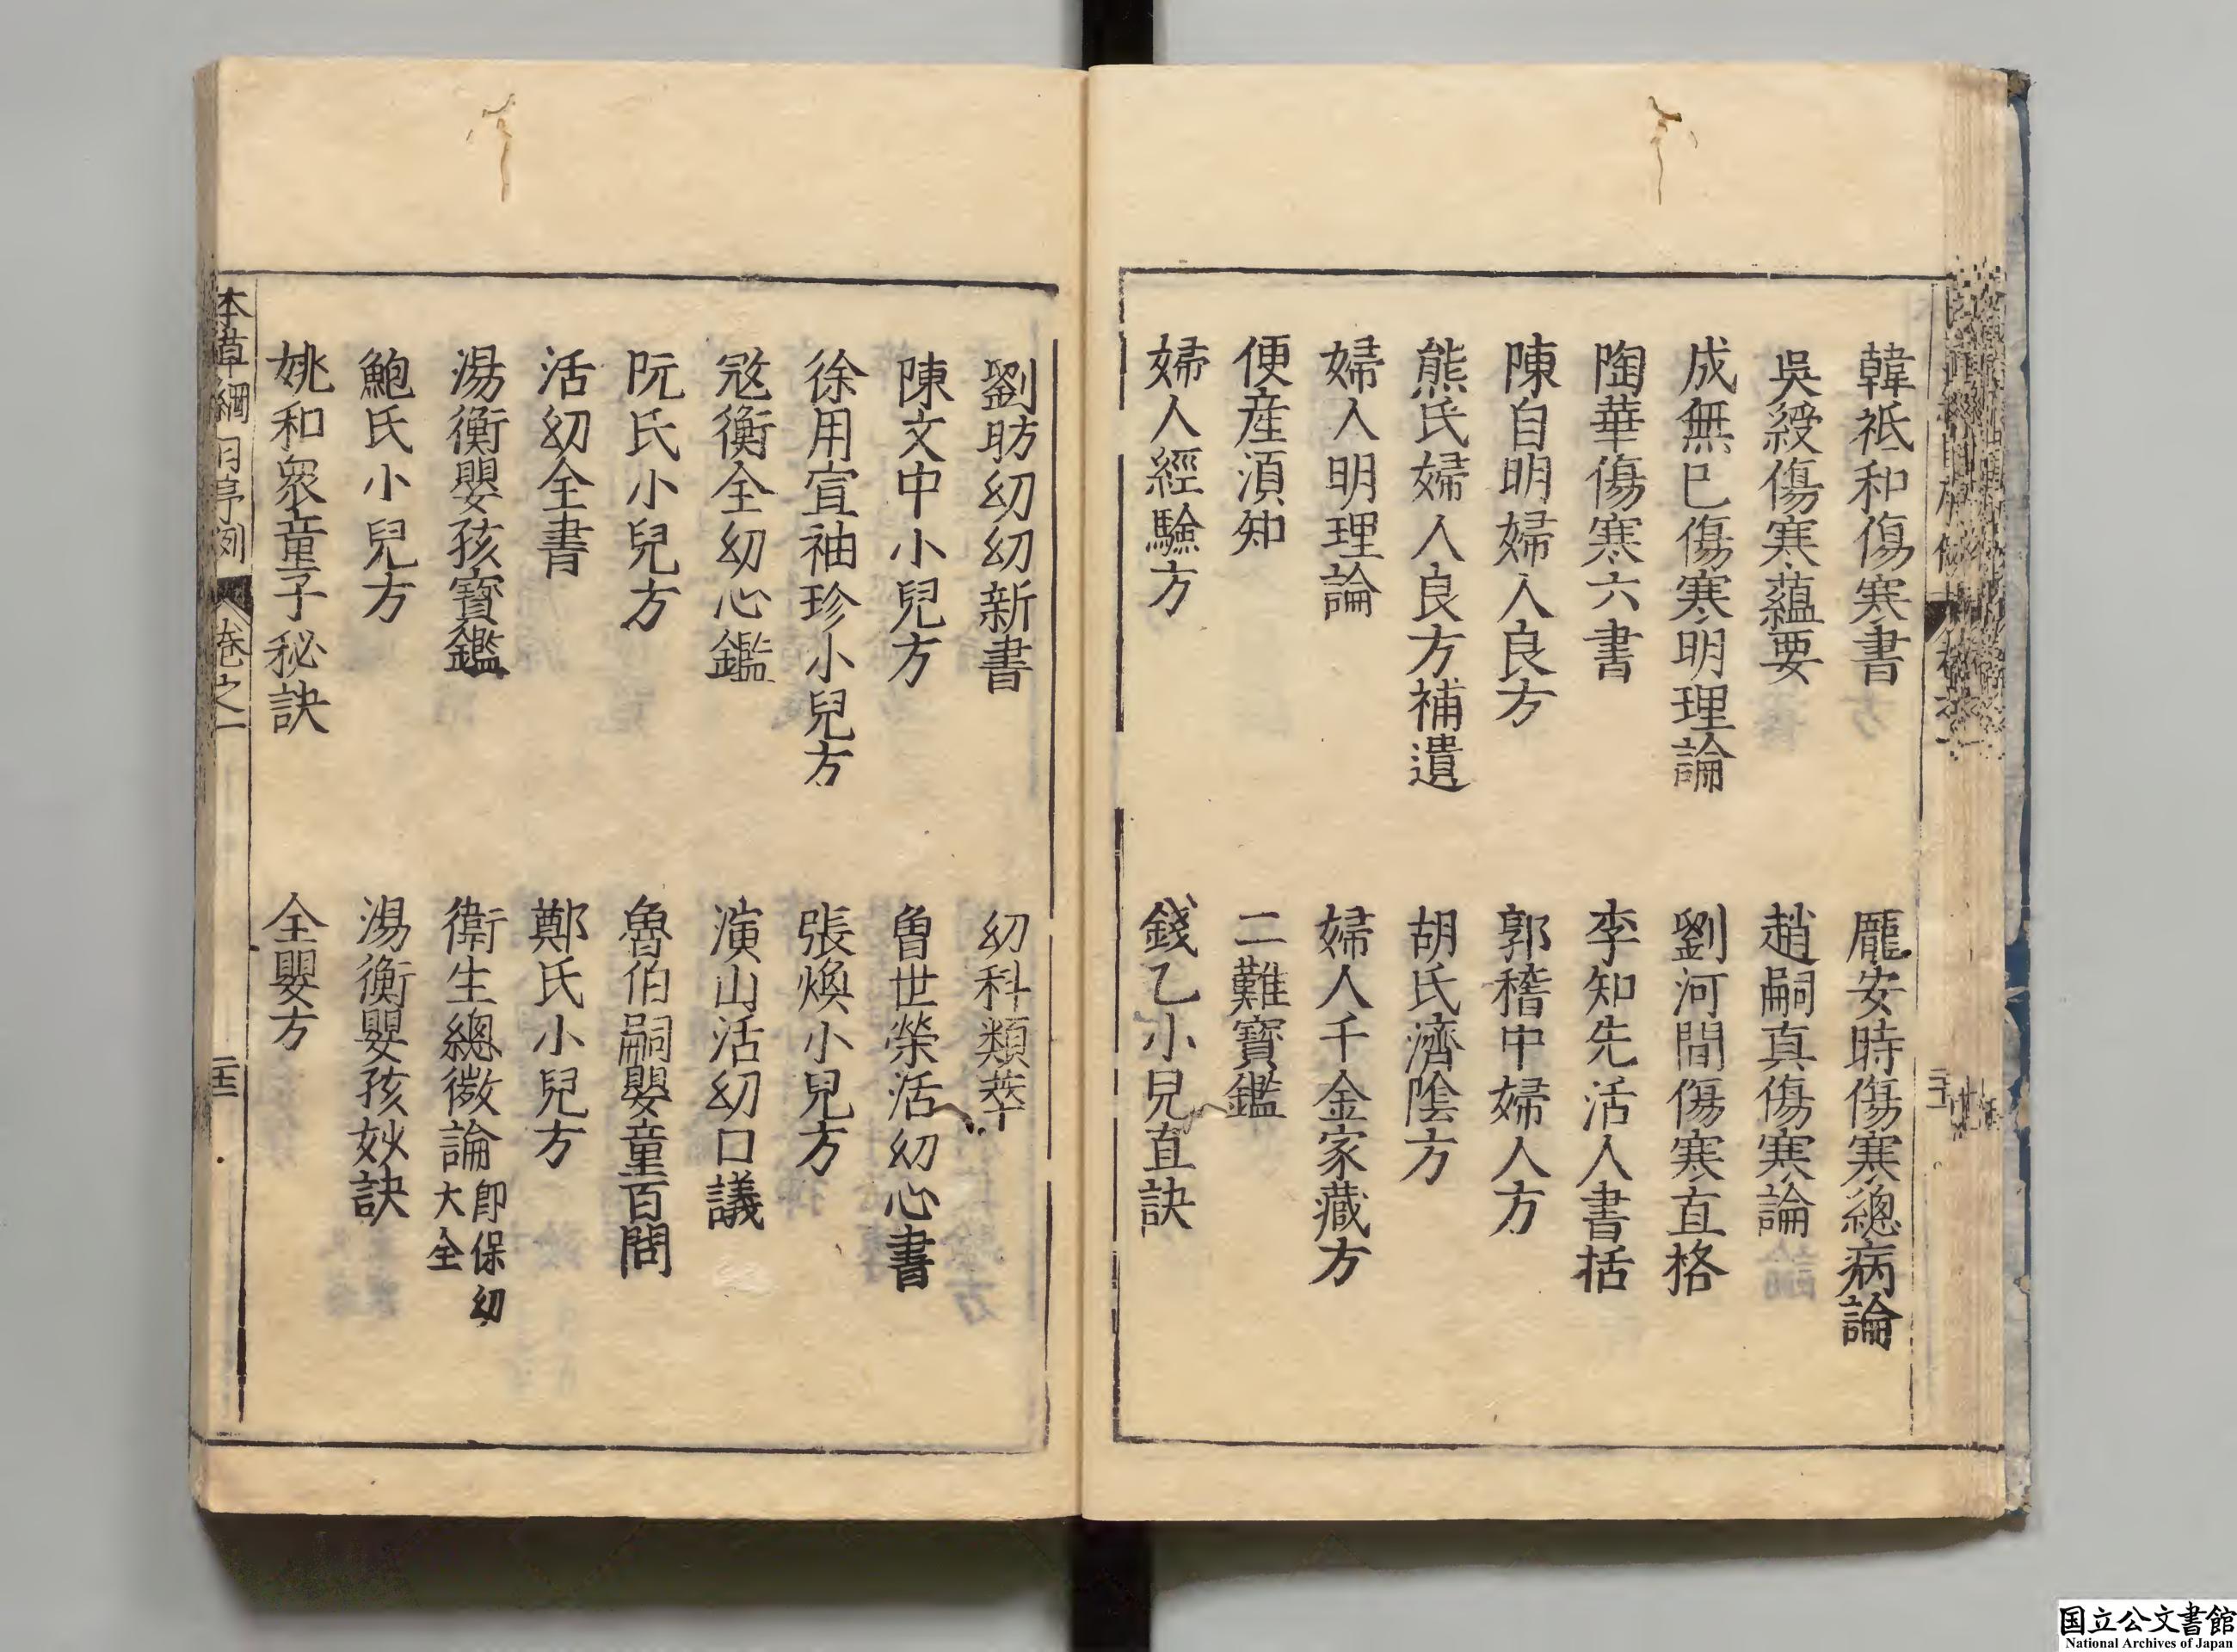 韓祗和傷寒書
龐安時傷寒總病論
吳綬傷寒蘊要
趙嗣真傷寒論
成無已傷寒明理論
劉河間傷寒直格
陶華傷寒六書
李知先活人書括
陳自明婦人良方
郭稽中婦人方
熊氏婦人良方補遺
胡氏濟陰方
婦人明理論
婦人千金家藏方
便産須知
二難寶鑑
婦人經驗方
錢乙小兒直訣
劉昉幼幼新書
幼科類萃
陳文中小兒方
曾世榮活幼心書
徐用宣袖珍小兒方
張煥小兒方
寇衡全幼心鑑
演山活幼口議
阮氏小兒方
魯伯嗣嬰童百問
活幼全書
鄭氏小兒方
湯衡嬰孩寶鑑
衛生總微論即保幼大全
鮑氏小兒方
湯衡嬰孩妙訣
姚和衆童子秘訣
全嬰方
本草綱目序例 卷之一
国立公文書館
National Archives of Japan